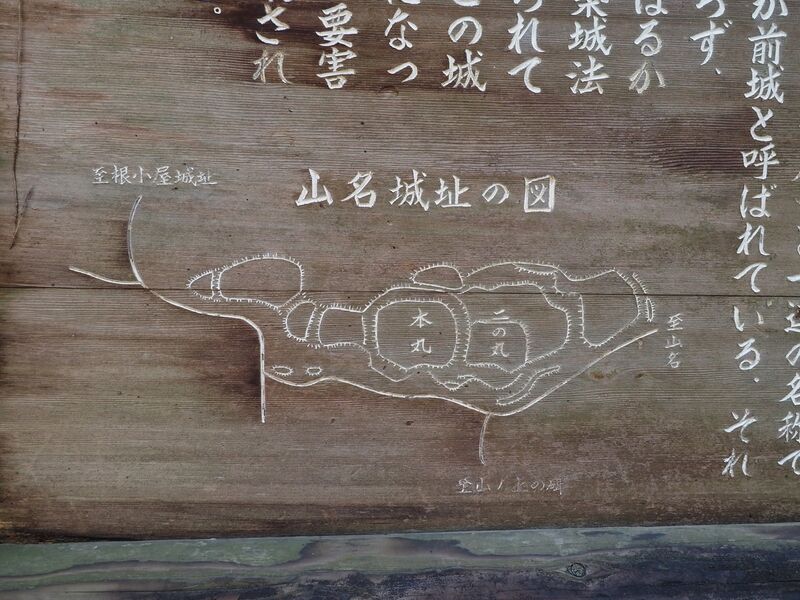 の名称で
が前城と呼ばれている。それ
らず、
はるか
築城法
られて
この城
になっ
要害
され
。
山名城址の図
至根小屋城址
本丸
二の丸
至山名
至山ノ上の碑